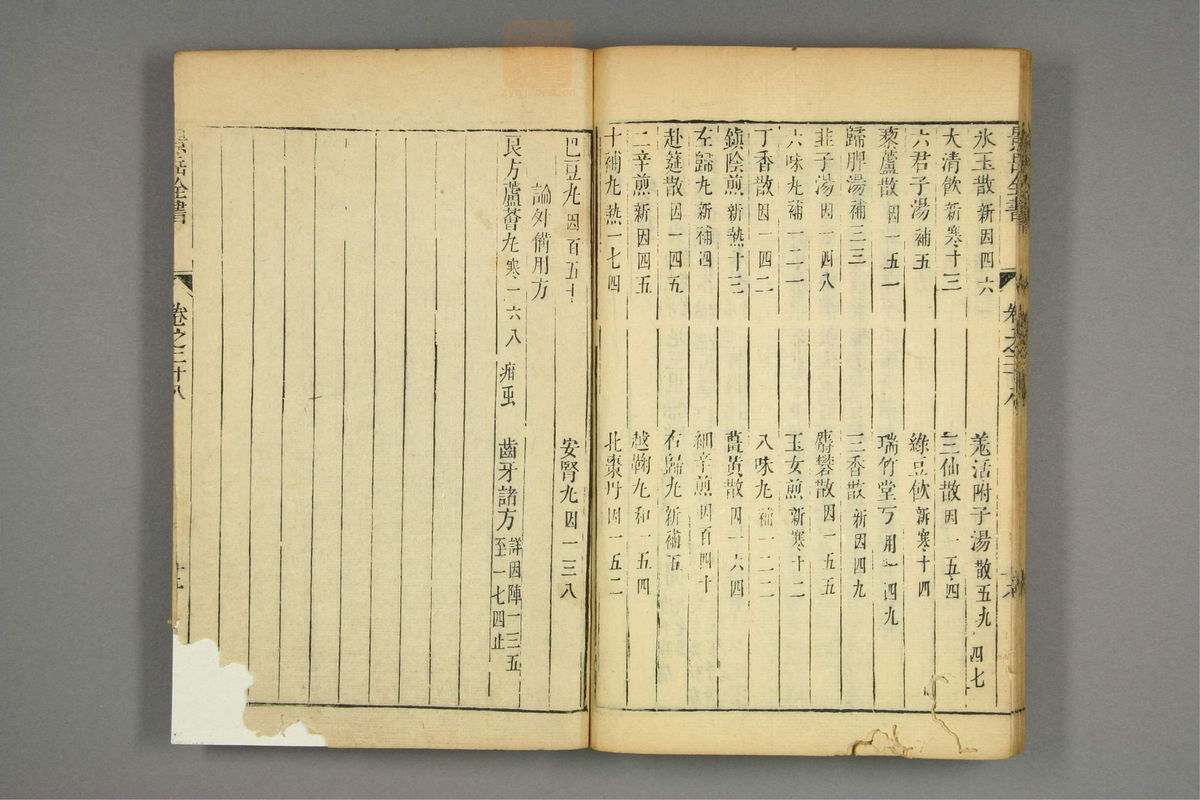 景岳全書
卷之二十八
冰玉散 新因四六
羗活附子湯 散五九 四七
大清飲 新寒十三
三仙散 因一五四
六君子湯 補五
綠豆飲 新寒十四
藜蘆散 因一五一
瑞竹堂方 用一四九
歸脾湯 補三三
三香散 新因四九
韭子湯 因一四八
麝礬散 因一五五
六味丸 補一二一
玉女煎 新寒十二
丁香散 因一四二
八味丸 補一二二
鎮陰煎 新熱十三
薑黃散 因一六四
左歸丸 新補四
細辛煎 因百四十
赴筵散 因一四五
右歸丸 新補五
二辛煎 新因四五
越鞠丸 和一五四
十補丸 熱一七四
北棗丹 因一五二
巴豆丸 因百五十
安腎丸 因一三八
論外備用方
良方蘆薈丸 寒一六八 疳虫
齒牙諸方 詳因陣一三五
至一七四止
景岳全書
卷之二十八